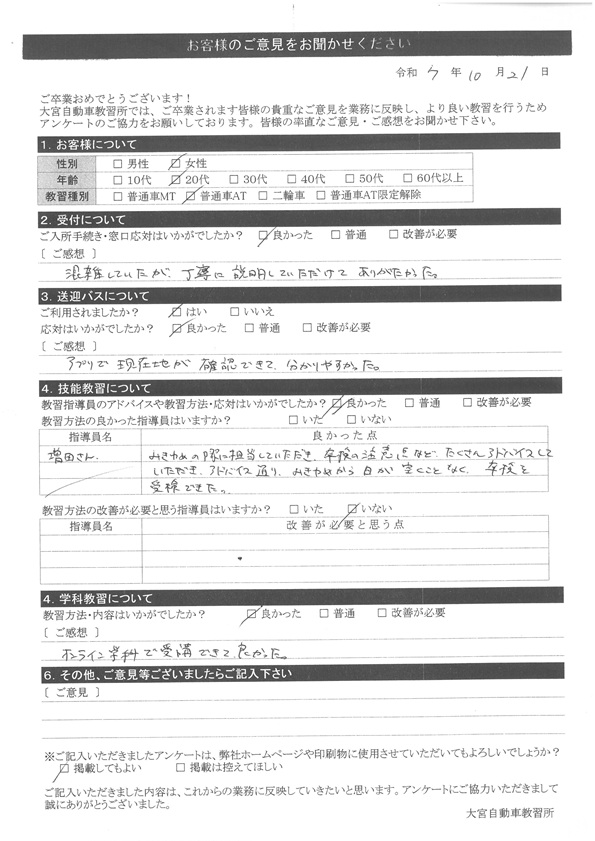 お客様のご意見をお聞かせください
令和 7 年 10 月 21 日
ご卒業おめでとうございます！
大宮自動車教習所では、ご卒業されます皆様の貴重なご意見を業務に反映し、より良い教習を行うため
アンケートのご協力をお願いしております。皆様の率直なご意見・ご感想をお聞かせ下さい。
1. お客様について
性別 □ 男性 ☑ 女性
年齢 □ 10代 ☑ 20代 □ 30代 □ 40代 □ 50代 □ 60代以上
教習種別 □ 普通車MT ☑ 普通車AT □ 二輪車 □ 普通車AT限定解除
2. 受付について
ご入所手続き・窓口応対はいかがでしたか？ ☑ 良かった □ 普通 □ 改善が必要
［ ご感想 ］
混雑していたが、丁寧に説明していただけてありがたかった。
3. 送迎バスについて
ご利用されましたか？ ☑ はい □ いいえ
応対はいかがでしたか？ ☑ 良かった □ 普通 □ 改善が必要
［ ご感想 ］
アプリで現在地が確認できて、分かりやすかった。
4. 技能教習について
教習指導員のアドバイスや教習方法・応対はいかがでしたか？ ☑ 良かった □ 普通 □ 改善が必要
教習方法の良かった指導員はいますか？ □ いた □ いない
指導員名 良かった点
増田さん みきわめの際に担当していただき、卒検の注意点など、たくさんアドバイスして
いただき、アドバイス通り、みきわめから日が空くことなく、卒検を
受検できた。
教習方法の改善が必要と思う指導員はいますか？ □ いた ☑ いない
指導員名 改善が必要と思う点
4. 学科教習について
教習方法・内容はいかがでしたか？ ☑ 良かった □ 普通 □ 改善が必要
［ ご感想 ］
オンライン学科で受講できて良かった。
6. その他、ご意見等ございましたらご記入下さい
［ ご意見 ］
※ご記入いただきましたアンケートは、弊社ホームページや印刷物に使用させていただいてもよろしいでしょうか？
☑ 掲載してもよい □ 掲載は控えてほしい
ご記入いただきました内容は、これからの業務に反映していきたいと思います。アンケートにご協力いただきまして
誠にありがとうございました。
大宮自動車教習所